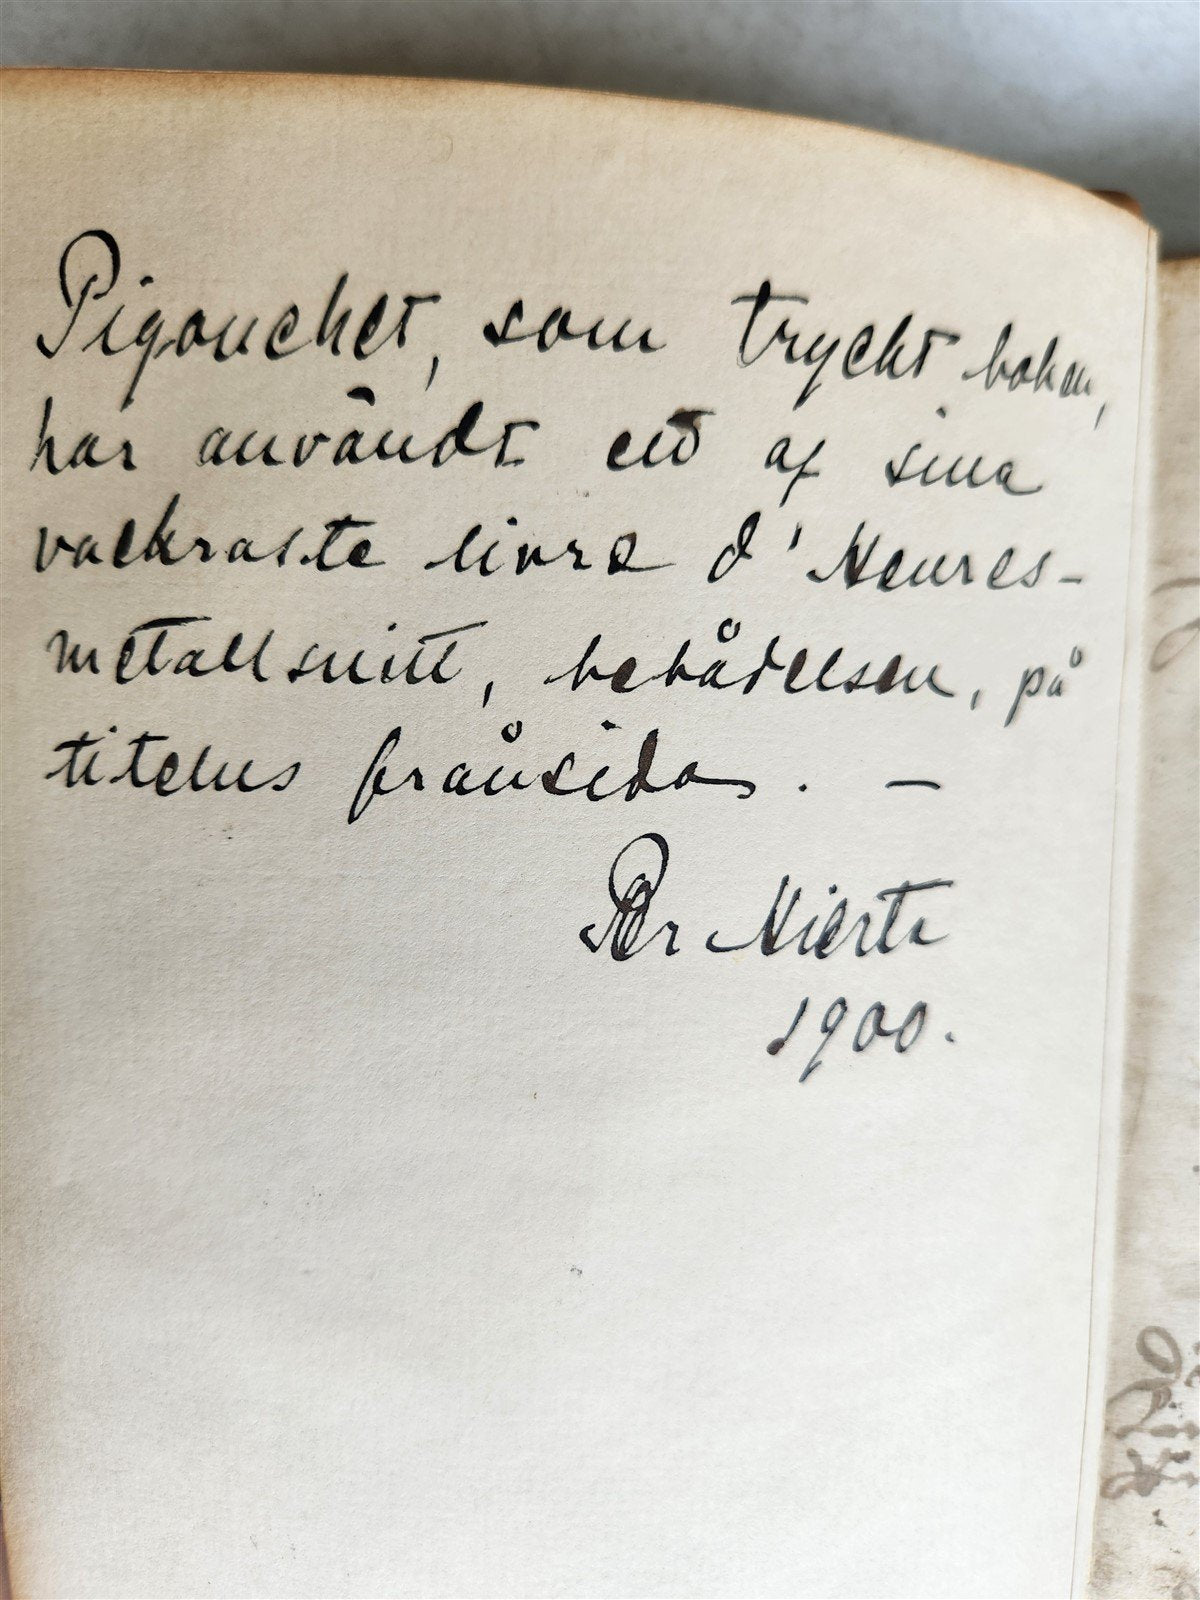 Pigouchet, som tryckt boken,
har användt ett af sina
vackraste livre d'Heures-
metallsnitt, bebådelsen, på
titelns frånsida. –
Per Hierta
1900.